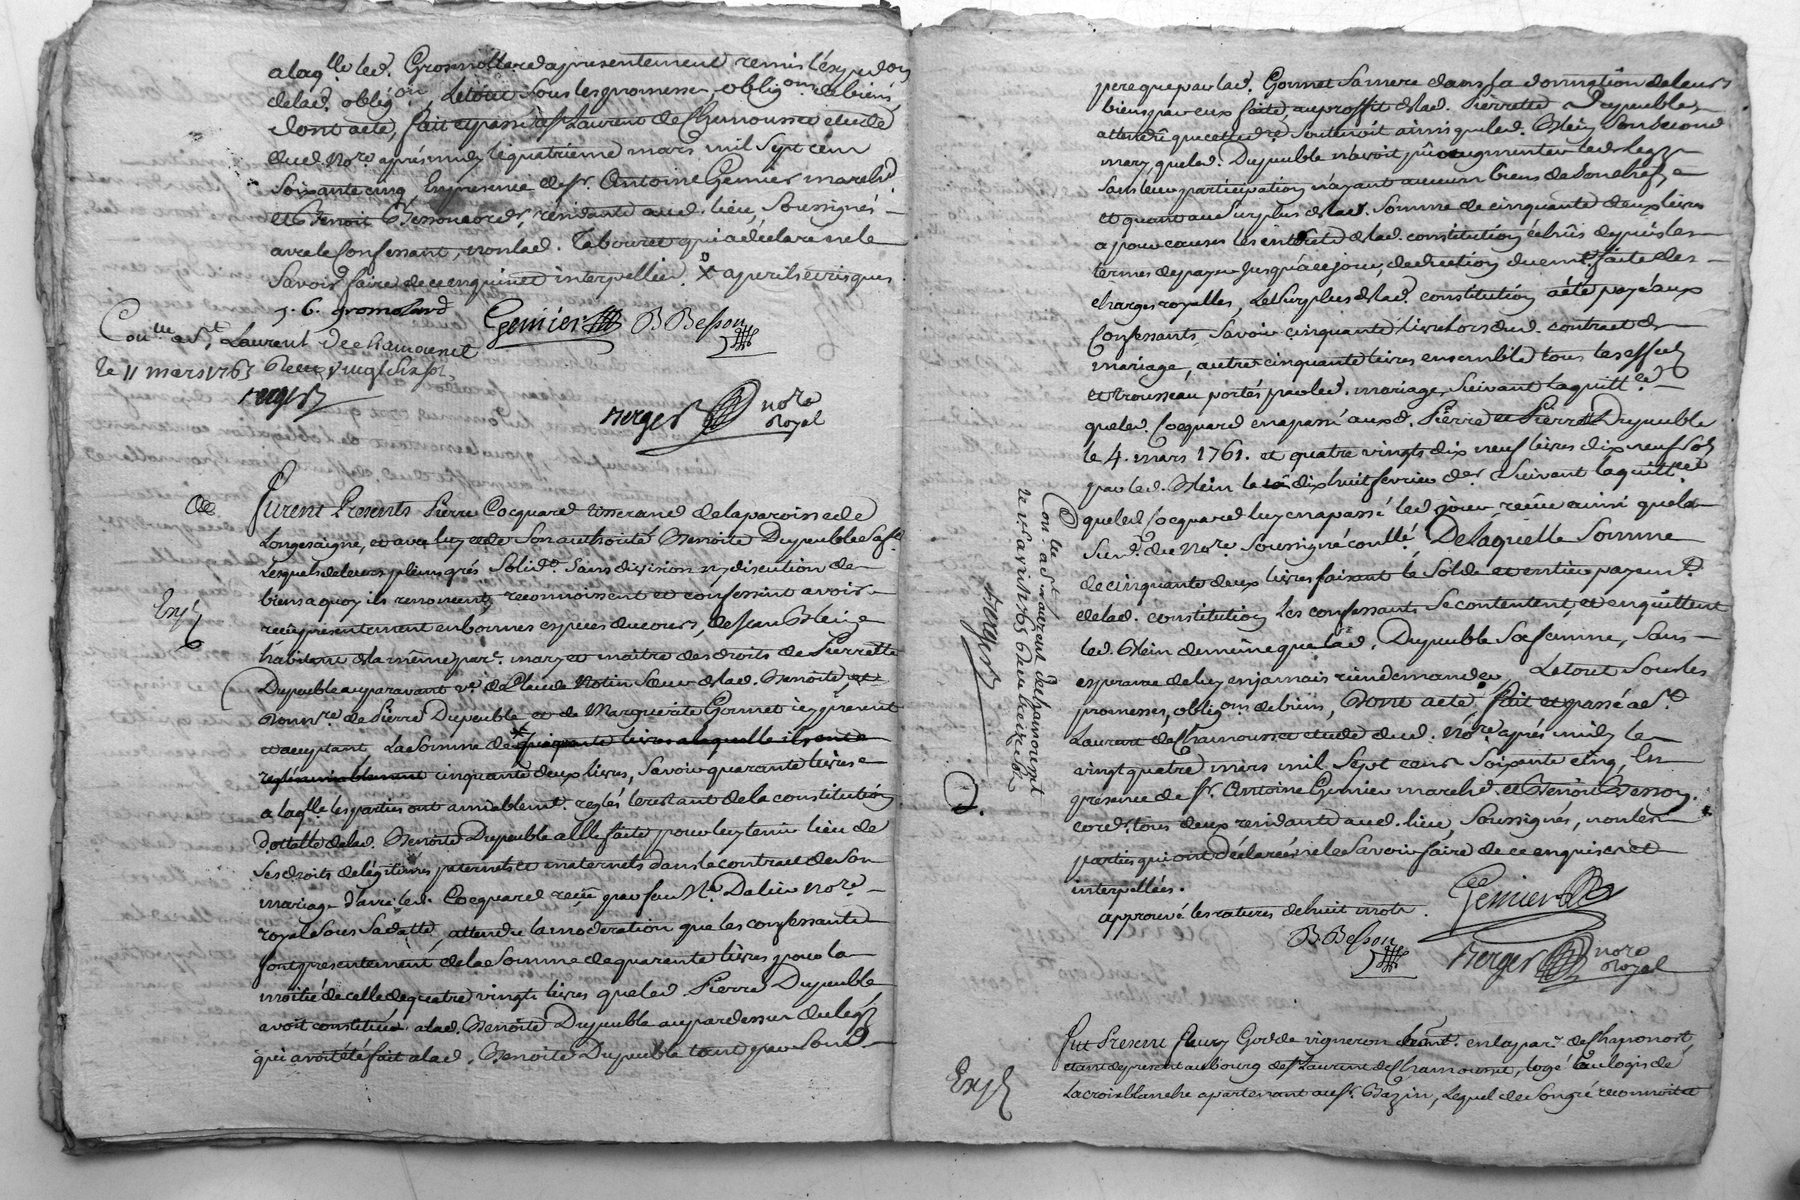 a laq.lle led. Gromollard a presentement remis l'expe.don
delad. oblig.on, Letout sous les promesses, oblig.on de biens
dont acte, fait et passé à S.t Laurent de Chamousset etude
dud. no.re après midy le quatrieme mars mil sept cent
soixante cinq, En presence de s.r Antoine Gemier march.d
et Benoit Besson cord.r, residants aud. lieu, soussignés
avec le confessant, non lad. Tabouret qui a déclaré ne le
savoir faire de ce enquise et interpellée. x a perils et risques
J. C. gromolard
Gemier B Besson
Con.lle a S.t Laurent de chamousset
le 11 mars 1765 Recu vingt six sol.
verger
verger no.re Royal
De
Furent Presents Pierre Cocquard tisserand de la paroisse de
Longesaigne, et avec luy et de son authorité Benoite Dupeuble sa f.e
Lesquels de leurs pleins grés solid.t sans division ny discution de
biens a quoy ils renoncent, reconnoissent et confessent avoir
Exp.é
reçu presentement en bonnes especes du cours, de Jean Blein
habitant de la même par.e mary et maitre des droits de Pierrette
Dupeuble auparavant v.e de Claude Notin soeur de lad. Benoite, et
donat.re de Pierre Dupeuble et de Marguerite Gonnet icy present
et acceptant La somme de cinquante livres a laquelle ils ont
reglé amiablement cinquante deux livres, savoir quarante livres
a laq.lle les parties ont amiablem.t reglés le restant de la constitution
dotalle de lad. Benoite Dupeuble a elle faite pour luy tenir lieu de
ses droits de légitimes paternels et maternels dans le contract de son
mariage d'avec led. Cocquard reçu par feu M.e Dalin no.re
royal sous sa datte, attendu la moderation que les confessants
font presentement de la somme de quarante livres pour la
moitié de celle de quatre vingt livres que led. Pierre Dupeuble
avoit constitué a lad. Benoite Dupeuble au par dessus du leg
qui avoit été fait a lad. Benoite Dupeuble tant par son d.
pere que par lad. Gonnet sa mere dans la donation de leurs
biens par eux faite, au proffit de lad. Pierrette Dupeuble
attendu que cette d.re soutenoit ainsi que led. Blein son second
mary que led. Dupeuble n'avoit pu augmenter led. leg
sans leur participation n'ayant aucun biens de son chef
et quant au surplus de lad. somme de cinquante deux livres
a pour causes les interets de lad. constitution échus depuis les
termes de payer jusqu'à ce jour, deduction du ent.t faite des
charges royalles, Le surplus de lad. constitution a été payé aux
confessants savoir cinquante livres lors dud. contract de
mariage, autre cinquante livres ensemble tous les effets
et trousseau portés par led. mariage, suivant la quitt.ce
que led. Cocquard en a passé auxd. Pierre et Pierrette Dupeuble
le 4. mars 1761. et quatre vingts dix neuf livres dix neuf sol
par led. Blein le dix huit fevrier d.er suivant la quitt.ce
que led. Cocquard luy en a passé led. jour, reçue ainsi que la
sus.d. du no.re soussigné conllé. De laquelle somme
de cinquante deux livres faisant le solde et entier payem.t
de lad. constitution Les confessants se contentent, et en quittent
led. Blein de même que lad. Dupeuble sa femme, sans
esperance de luy en jamais rien demander, Letout sous les
promesses, oblig.on de biens, Dont acte, fait et passé a S.t
Laurent de Chamousset etude dud. no.re après midy le
vingt quatre mars mil sept cent soixante cinq, En
presence de s.r Antoine Gemier march.d et Benoit Besson
cord.r tous deux residants aud. lieu, soussignés, non les
parties qui ont déclarées ne le savoir faire de ce enquises et
interpellées.
approuvé les ratures de huit mots.
Gemier
B Besson
verger no.re Royal
Con.lle a S.t Laurent de chamousset
verger
Exp.é
Fut Present fleury Godde vigneron dem.t en la par.e de Chaponost
etant de present au bourg de S.t Laurent de Chamousset, logé au logis de
La croix blanche apartenant au s.r Bazin, Lequel de son gré reconnoit et